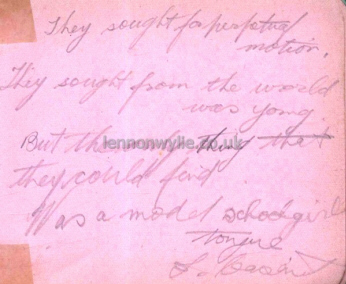 They sought for perpetual
motion.
They sought from the world
was young
But the only thing that
they could find
Was a model schoolgirls
tongue
lennonwylie.co.uk